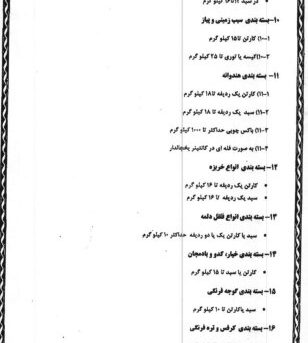 • در سبد تا ۱۶ کیلو گرم
۱۰- بسته بندی سیب زمینی و پیاز
۱-۱۰) کارتن تا ۱۵ کیلو گرم
۲-۱۰) کیسه یا توری تا ۲۵ کیلو گرم
۱۱- بسته بندی هندوانه
۱-۱۱) کارتن یک ردیفه تا ۱۸ کیلو گرم
۲-۱۱) سبد یک ردیفه تا ۱۸ کیلو گرم
۳-۱۱) باکس چوبی حداکثر تا ۱۰۰۰ کیلو گرم
۴-۱۱) به صورت فله ای در کانتینر یخچالدار
۱۲- بسته بندی انواع خربزه
• کارتن یک ردیفه تا ۱۶ کیلو گرم
• سبد یک ردیفه تا ۱۶ کیلو گرم
۱۳- بسته بندی انواع فلفل دلمه
• سبد یا کارتن یک یا دو ردیفه حداکثر ۱۰ کیلو گرم
۱۴- بسته بندی خیار، کدو و بادمجان
• کارتن یا سبد تا ۱۵ کیلو گرم
۱۵- بسته بندی گوجه فرنگی
• سبد یاکارتن تا ۱۰ کیلو گرم
۱۶- بسته بندی کرفس و تره فرنگی